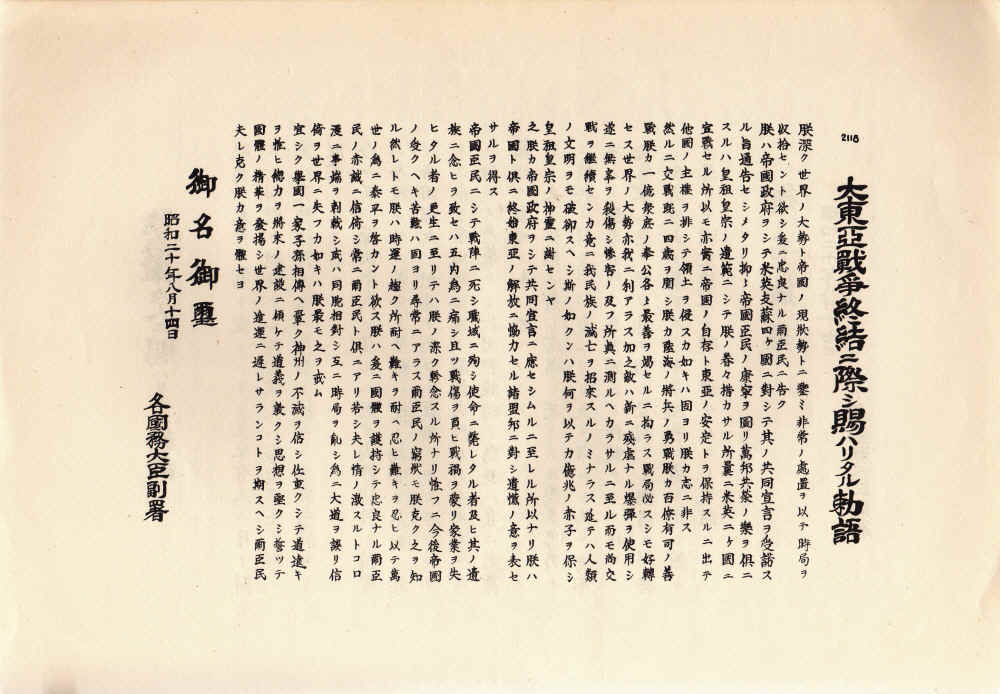 2118
大東亞戰爭終結ニ際シ賜ハリタル勅語
朕深ク世界ノ大勢ト帝國ノ現狀勢トニ鑒ミ非常ノ處置ヲ以テ時局ヲ
收拾セント欲シ爰ニ忠良ナル爾臣民ニ告ク
朕ハ帝國政府ヲシテ米英支蘇四ヶ國ニ對シテ其ノ共同宣言ヲ受諾ス
ル旨通告セシメタリ抑ゝ帝國臣民ノ康寧ヲ圖リ萬邦共榮ノ樂ヲ倶ニ
スルハ皇祖皇宗ノ遺範ニシテ朕ノ眷々措カサル所曩ニ米英二ヶ國ニ
宣戰セル所以モ亦實ニ帝國ノ自存ト東亞ノ安定トヲ保持スルニ出テ
他國ノ主權ヲ非シテ領土ヲ侵スカ如キハ固ヨリ朕カ志ニ非ス
然ルニ交戰既ニ四歳ヲ閲シ朕カ陸海ノ將兵ノ勇戰朕カ百僚有司ノ善
戰朕カ一億衆庶ノ奉公各ゝ最善ヲ竭セルニ拘ラス戰局必スシモ好轉
セス世界ノ大勢亦我ニ利アラス加之敵ハ新ニ殘虐ナル爆彈ヲ使用シ
遂ニ無辜ヲ殺傷シ惨害ノ及フ所眞ニ測ルヘカラサルニ至ル而モ尚交
戰ヲ繼續センカ竟ニ我民族ノ滅亡ヲ招來スルノミナラス延テハ人類
ノ文明ヲモ破御スヘシ斯ノ如クンハ朕何ヲ以テカ億兆ノ赤子ヲ保シ
皇祖皇宗ノ神靈ニ謝センヤ
之朕カ帝國政府ヲシテ共同宣言ニ應セシムルニ至レル所以ナリ朕ハ
帝國ト倶ニ終始東亞ノ解放ニ協力セル諸盟邦ニ對シ遺憾ノ意ヲ表セ
サルヲ得ス
帝國臣民ニシテ戰陣ニ死シ職域ニ殉シ使命ニ斃レタル者及ヒ其ノ遺
族ニ念ヒヲ致セハ五内爲ニ痛シ且ツ戰傷ヲ負ヒ戰禍ヲ蒙リ家業ヲ失
ヒタル者ノ更生ニ至リテハ朕ノ深ク軫念スル所ナリ惟フニ今後帝國
ノ受クヘキ苦難ハ固ヨリ尋常ニアラス爾臣民ノ窮状モ朕克ク之ヲ知
ル然レトモ朕ハ時運ノ趨ク所耐ヘ難キヲ耐ヘ忍ヒ難キヲ忍ヒ以テ萬
世ノ為ニ泰平ヲ啓カント欲ス朕ハ爰ニ國體ヲ護持シテ忠良ナル爾臣
民ノ赤誠ニ信倚シ常ニ爾臣民ト倶ニアリ若シ夫レ情ノ激スルトコロ
濫ニ事端ヲ刺戟シ或ハ同胞相對シ互ニ時局ヲ亂シ為ニ大道ヲ誤リ信
倚ヲ世界ニ失フカ如キハ朕最モ之ヲ戒ム
宜シク擧國一家子孫相傳ヘ鞏ク神州ノ不滅ヲ信シ任重クシテ道遠キ
ヲ惟ヒ總力ヲ將來ノ建設ニ傾ケテ道義ヲ敦クシ思想ヲ堅クシ誓ツテ
國體ノ精華ヲ發揚シ世界ノ進運ニ遲レサランコトヲ期スヘシ爾臣民
夫レ克ク朕カ意ヲ體セヨ
御名御璽
昭和二十年八月十四日
各國務大臣副署